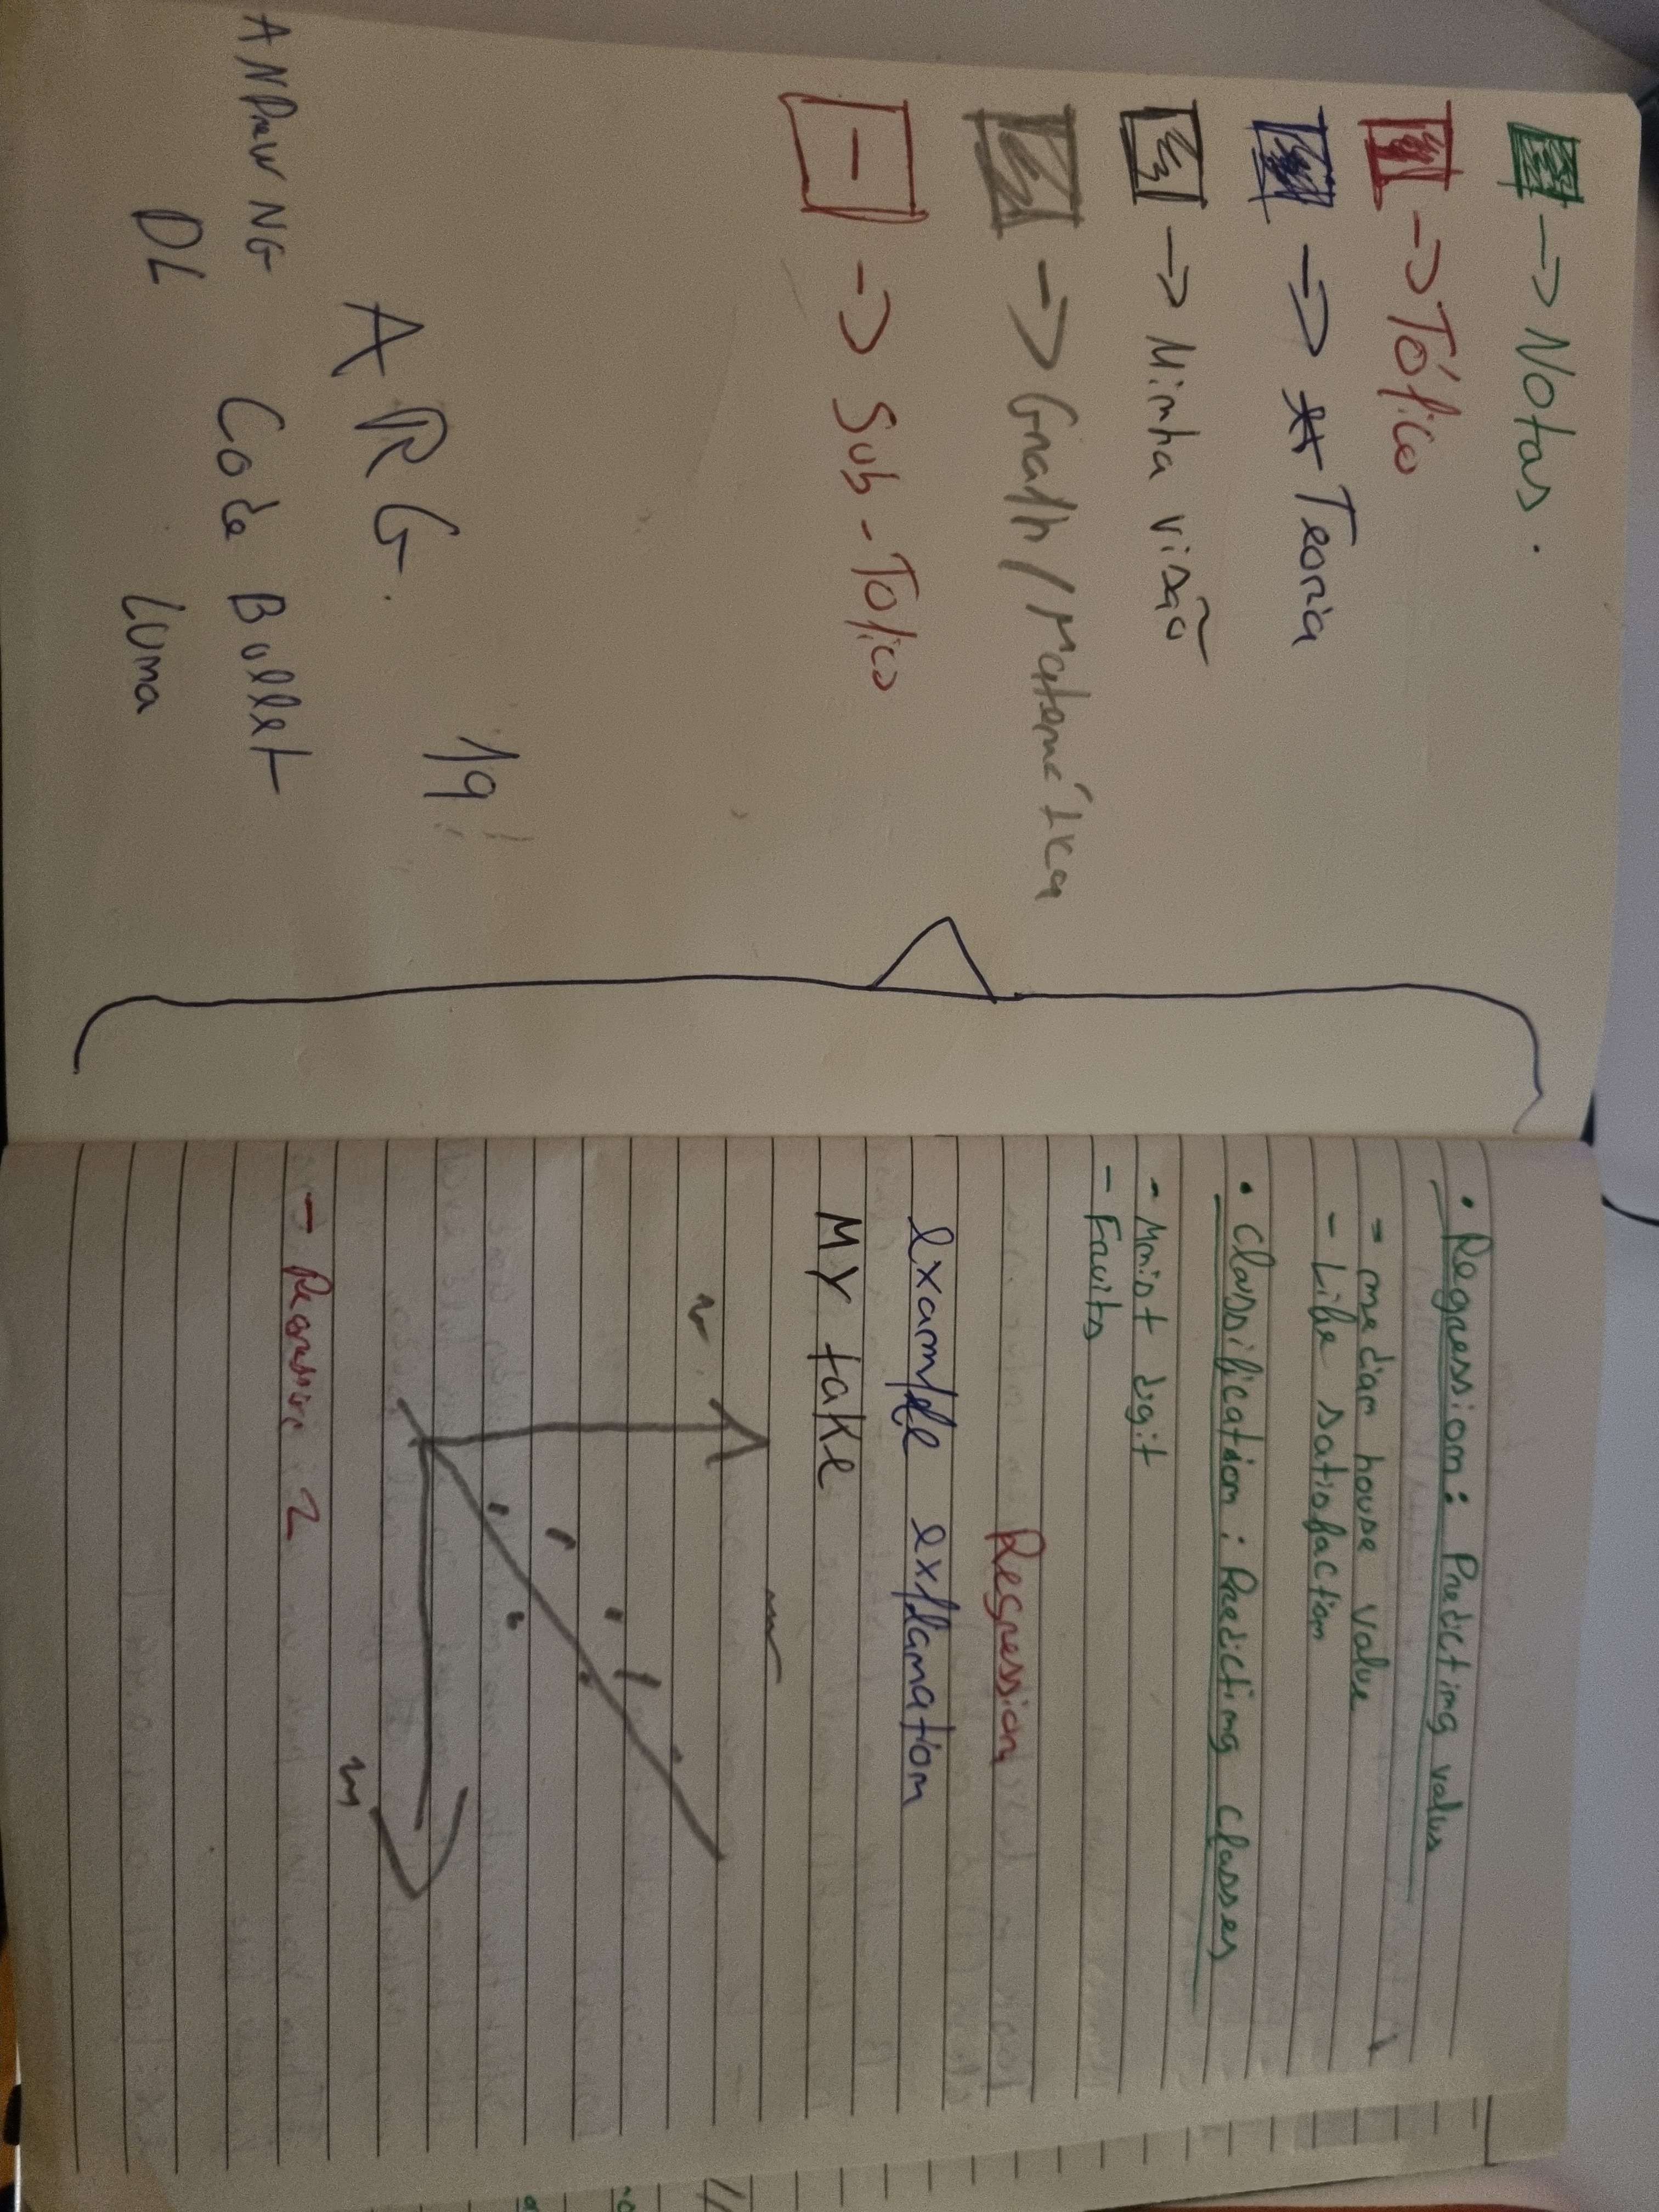 → Notas.
→ Tópico
→ Teoria
→ Minha visão
→ Graph / Matemática
- → Sub-Topico
19
A R G.
ANDrew NG
Code Bullet
DL
Luma
• Regression: Predicting value
- median house value
- Life satisfaction
• Classification: Predicting classes
- Mnist digit
- Fruits
Regression
example explanation
MY take
- Regression 2